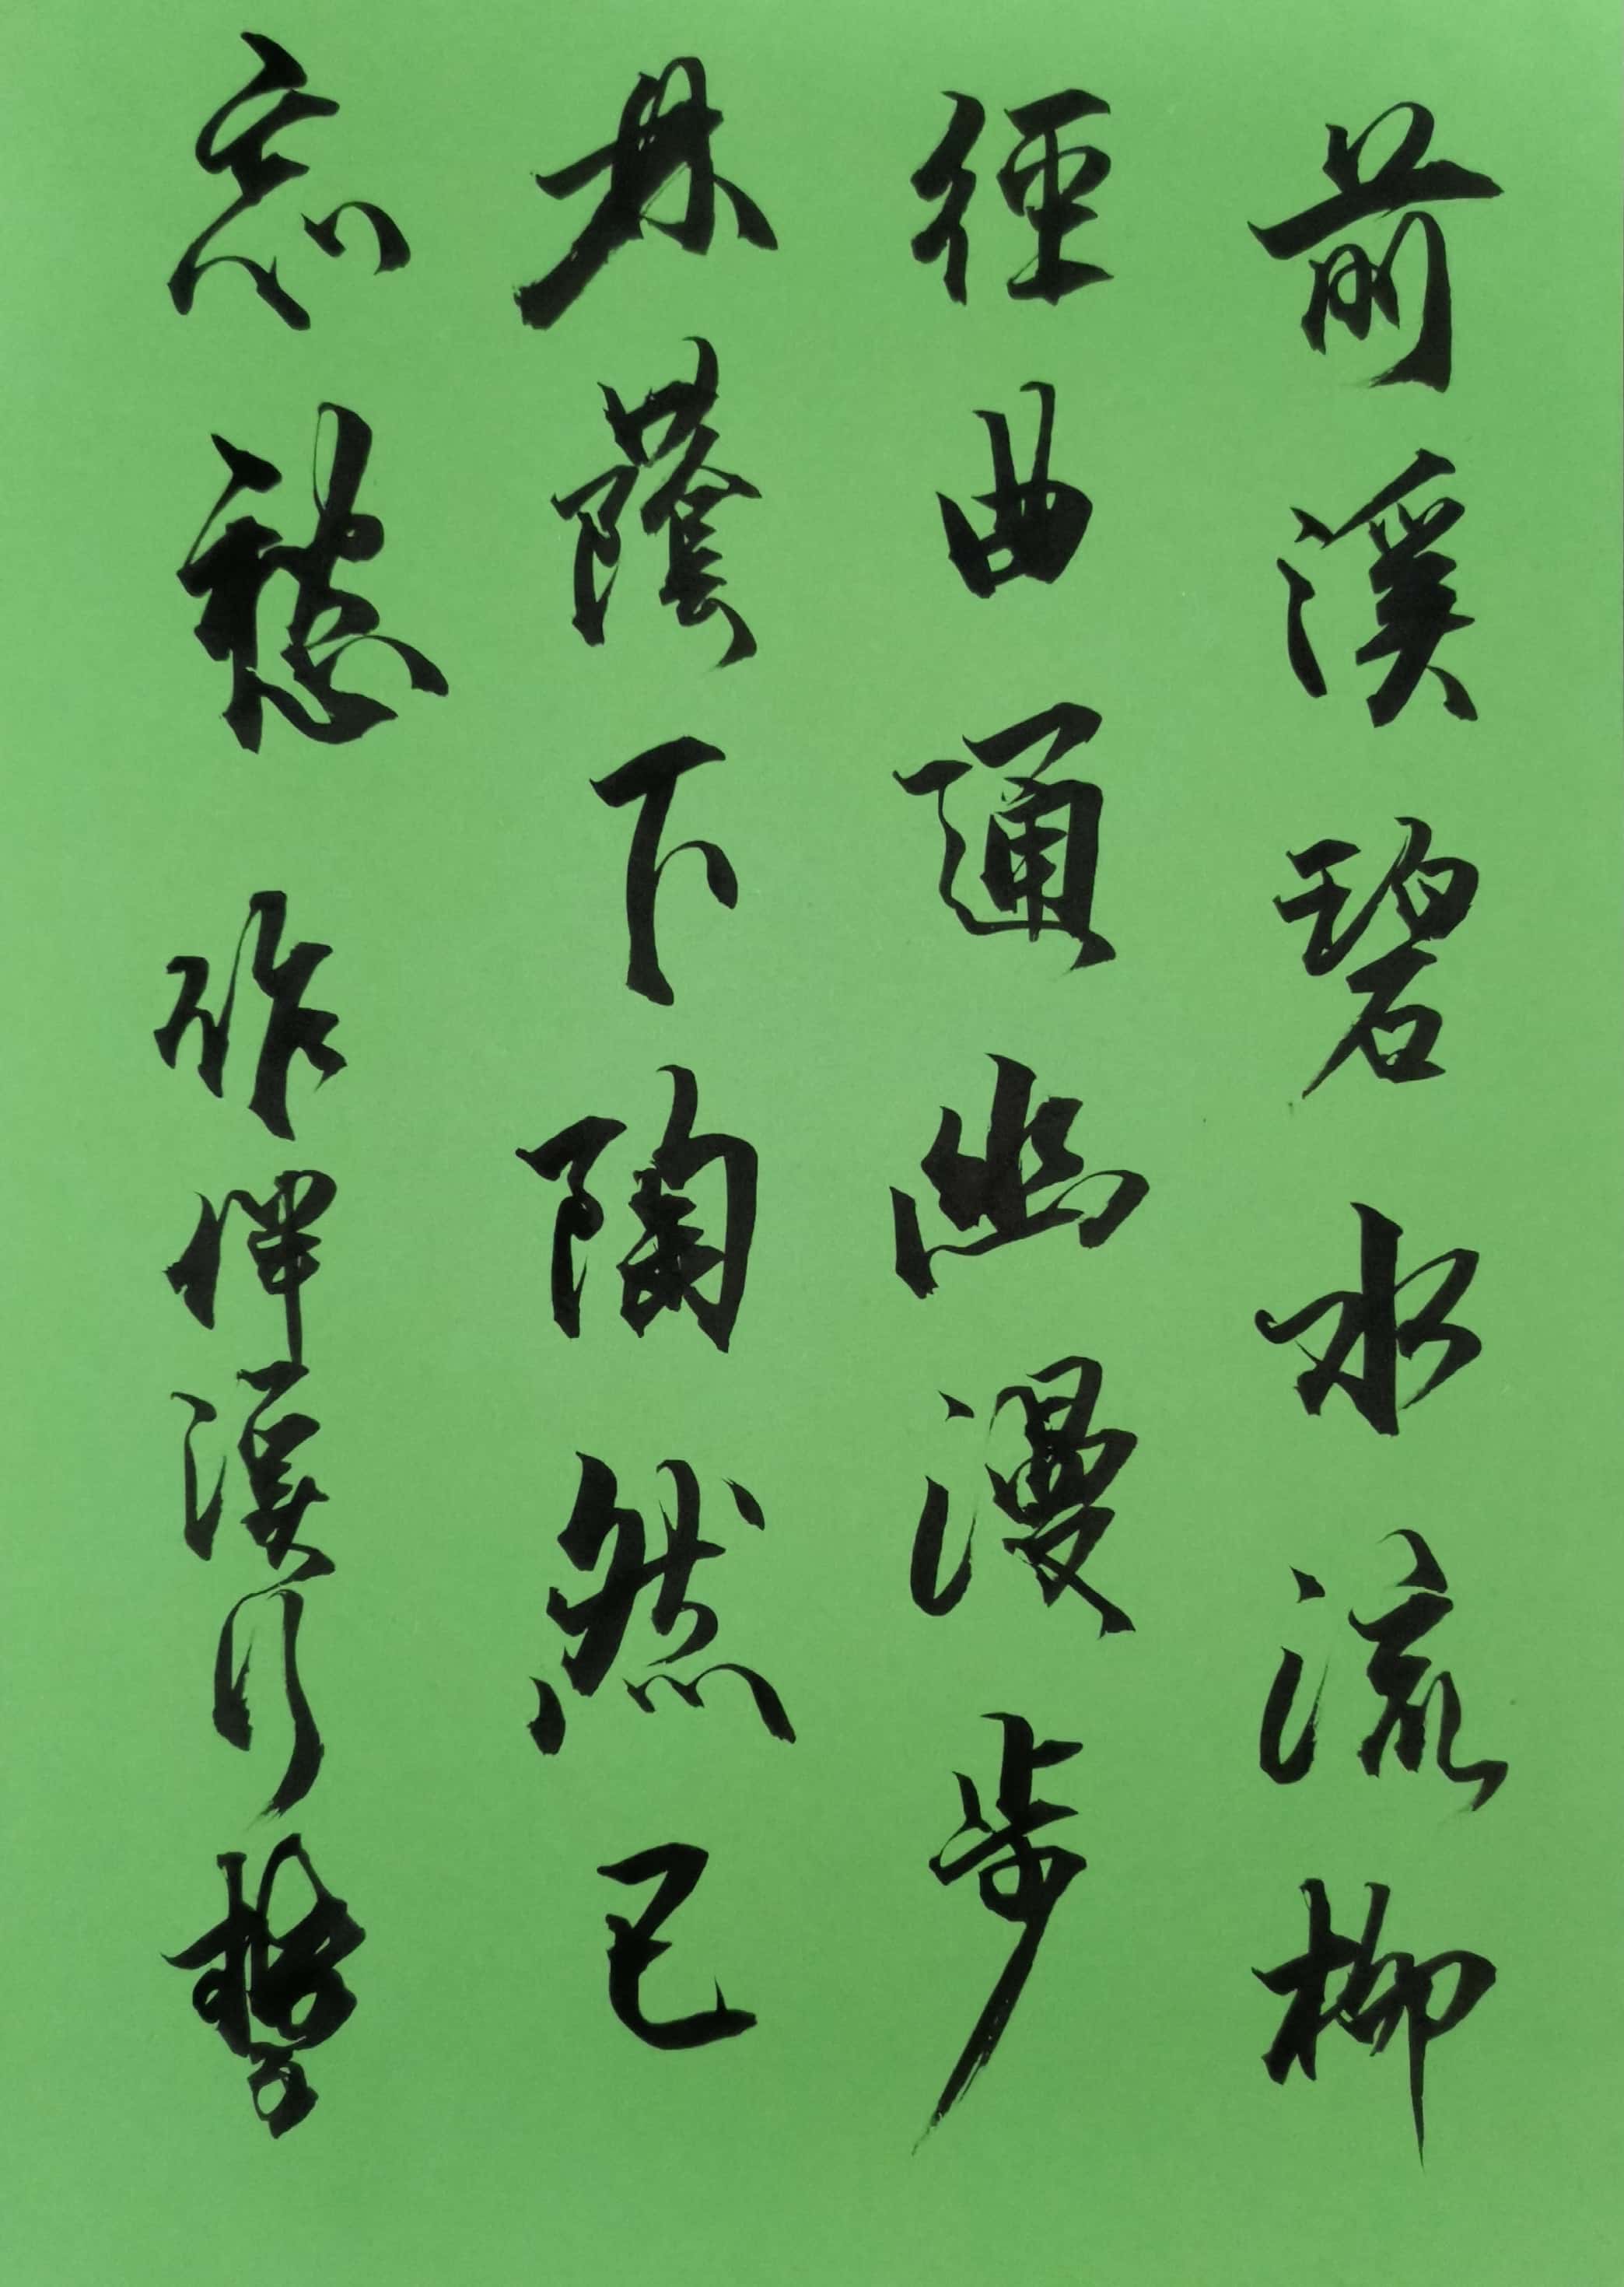 前溪碧水流柳
徑曲通幽漫步
林蔭下陶然已
忘愁 昨 溪行